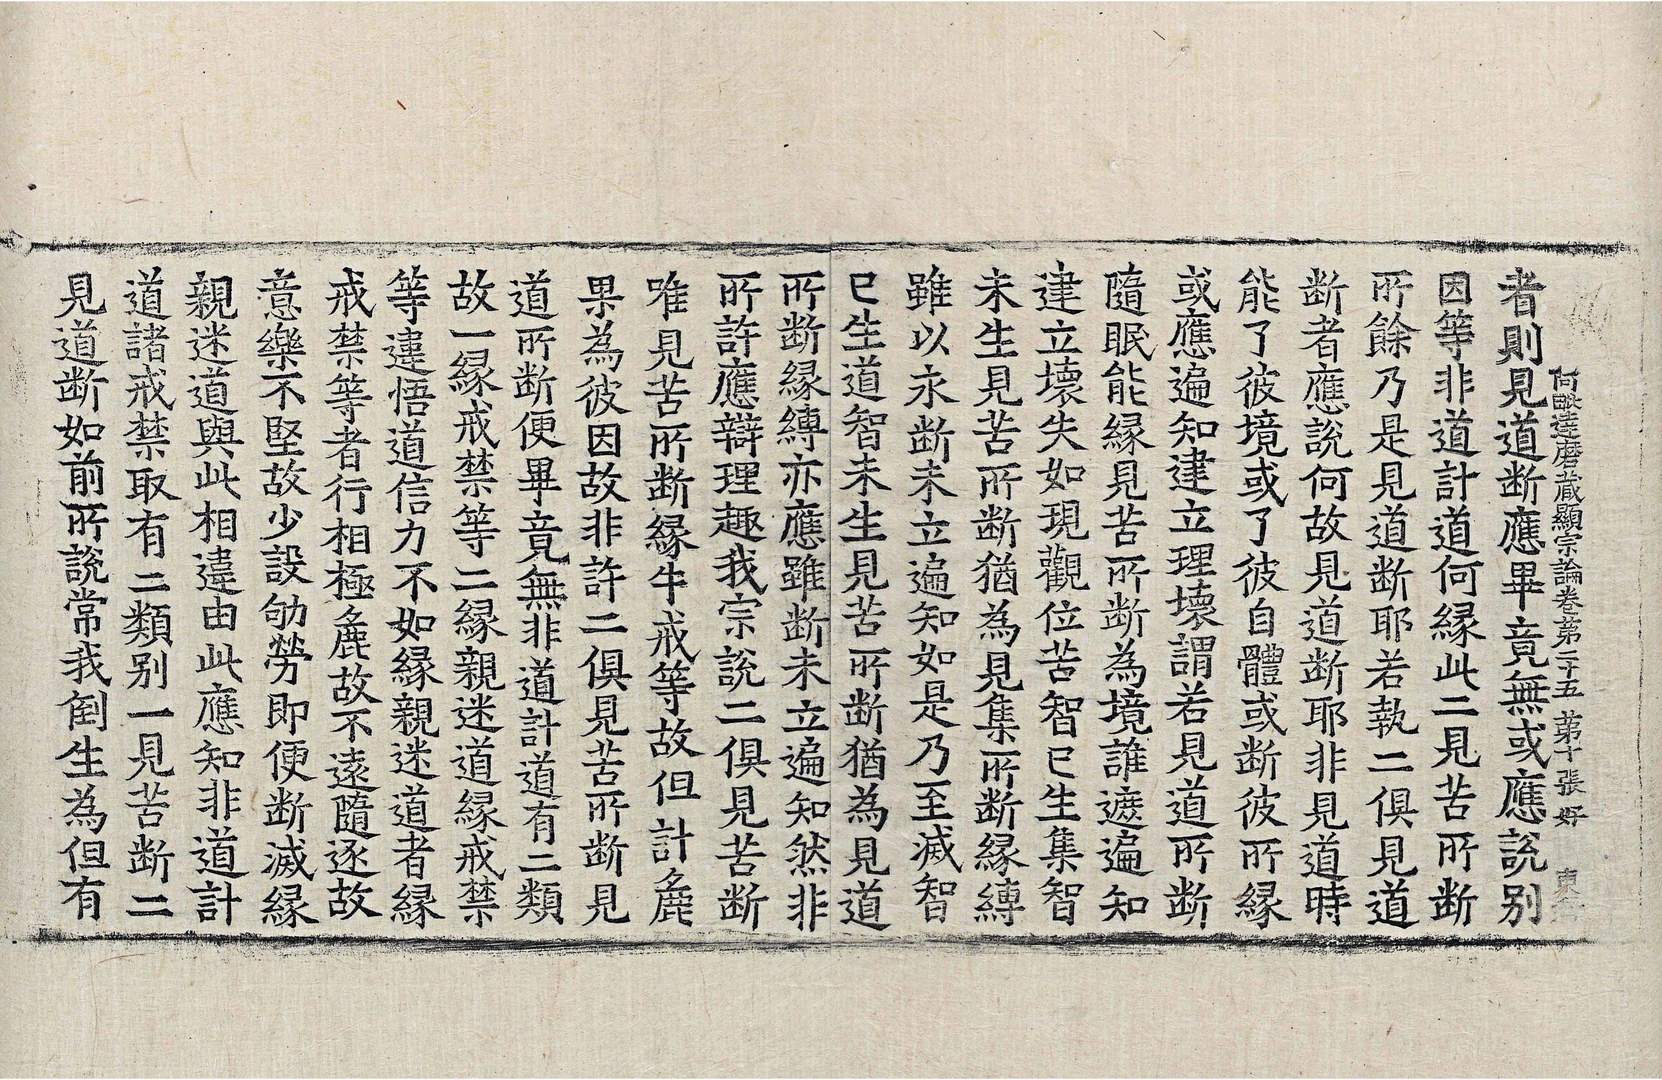 阿毗達磨藏顯宗論卷第二十五 第十張 好
者則見道斷應畢竟無或應說別
因等非道計道何緣此二見苦所斷
所餘乃是見道斷耶若執二俱見道
斷者應說何故見道斷耶非見道時
能了彼境或了彼自體或斷彼所緣
或應遍知建立理壞謂若見道所斷
隨眠能緣見苦所斷為境誰遮遍知
建立壞失如現觀位苦智已生集智
未生見苦所斷猶為見集所斷緣縛
雖以永斷未立遍知如是乃至滅智
已生道智未生見苦所斷猶為見道
所斷緣縛亦應雖斷未立遍知然非
所許應辯理趣我宗說二俱見苦斷
唯見苦所斷緣牛戒等故但計麁
果為彼因故非許二俱見苦所斷見
道所斷便畢竟無非道計道有二類
故一緣戒禁等二緣親迷道緣戒禁
等違悟道信力不如緣親迷道者緣
戒禁等者行相極麁故不遠隨逐故
意樂不堅故少設劬勞即便斷滅緣
親迷道與此相違由此應知非道計
道諸戒禁取有二類別一見苦斷二
見道斷如前所說常我倒生為但有